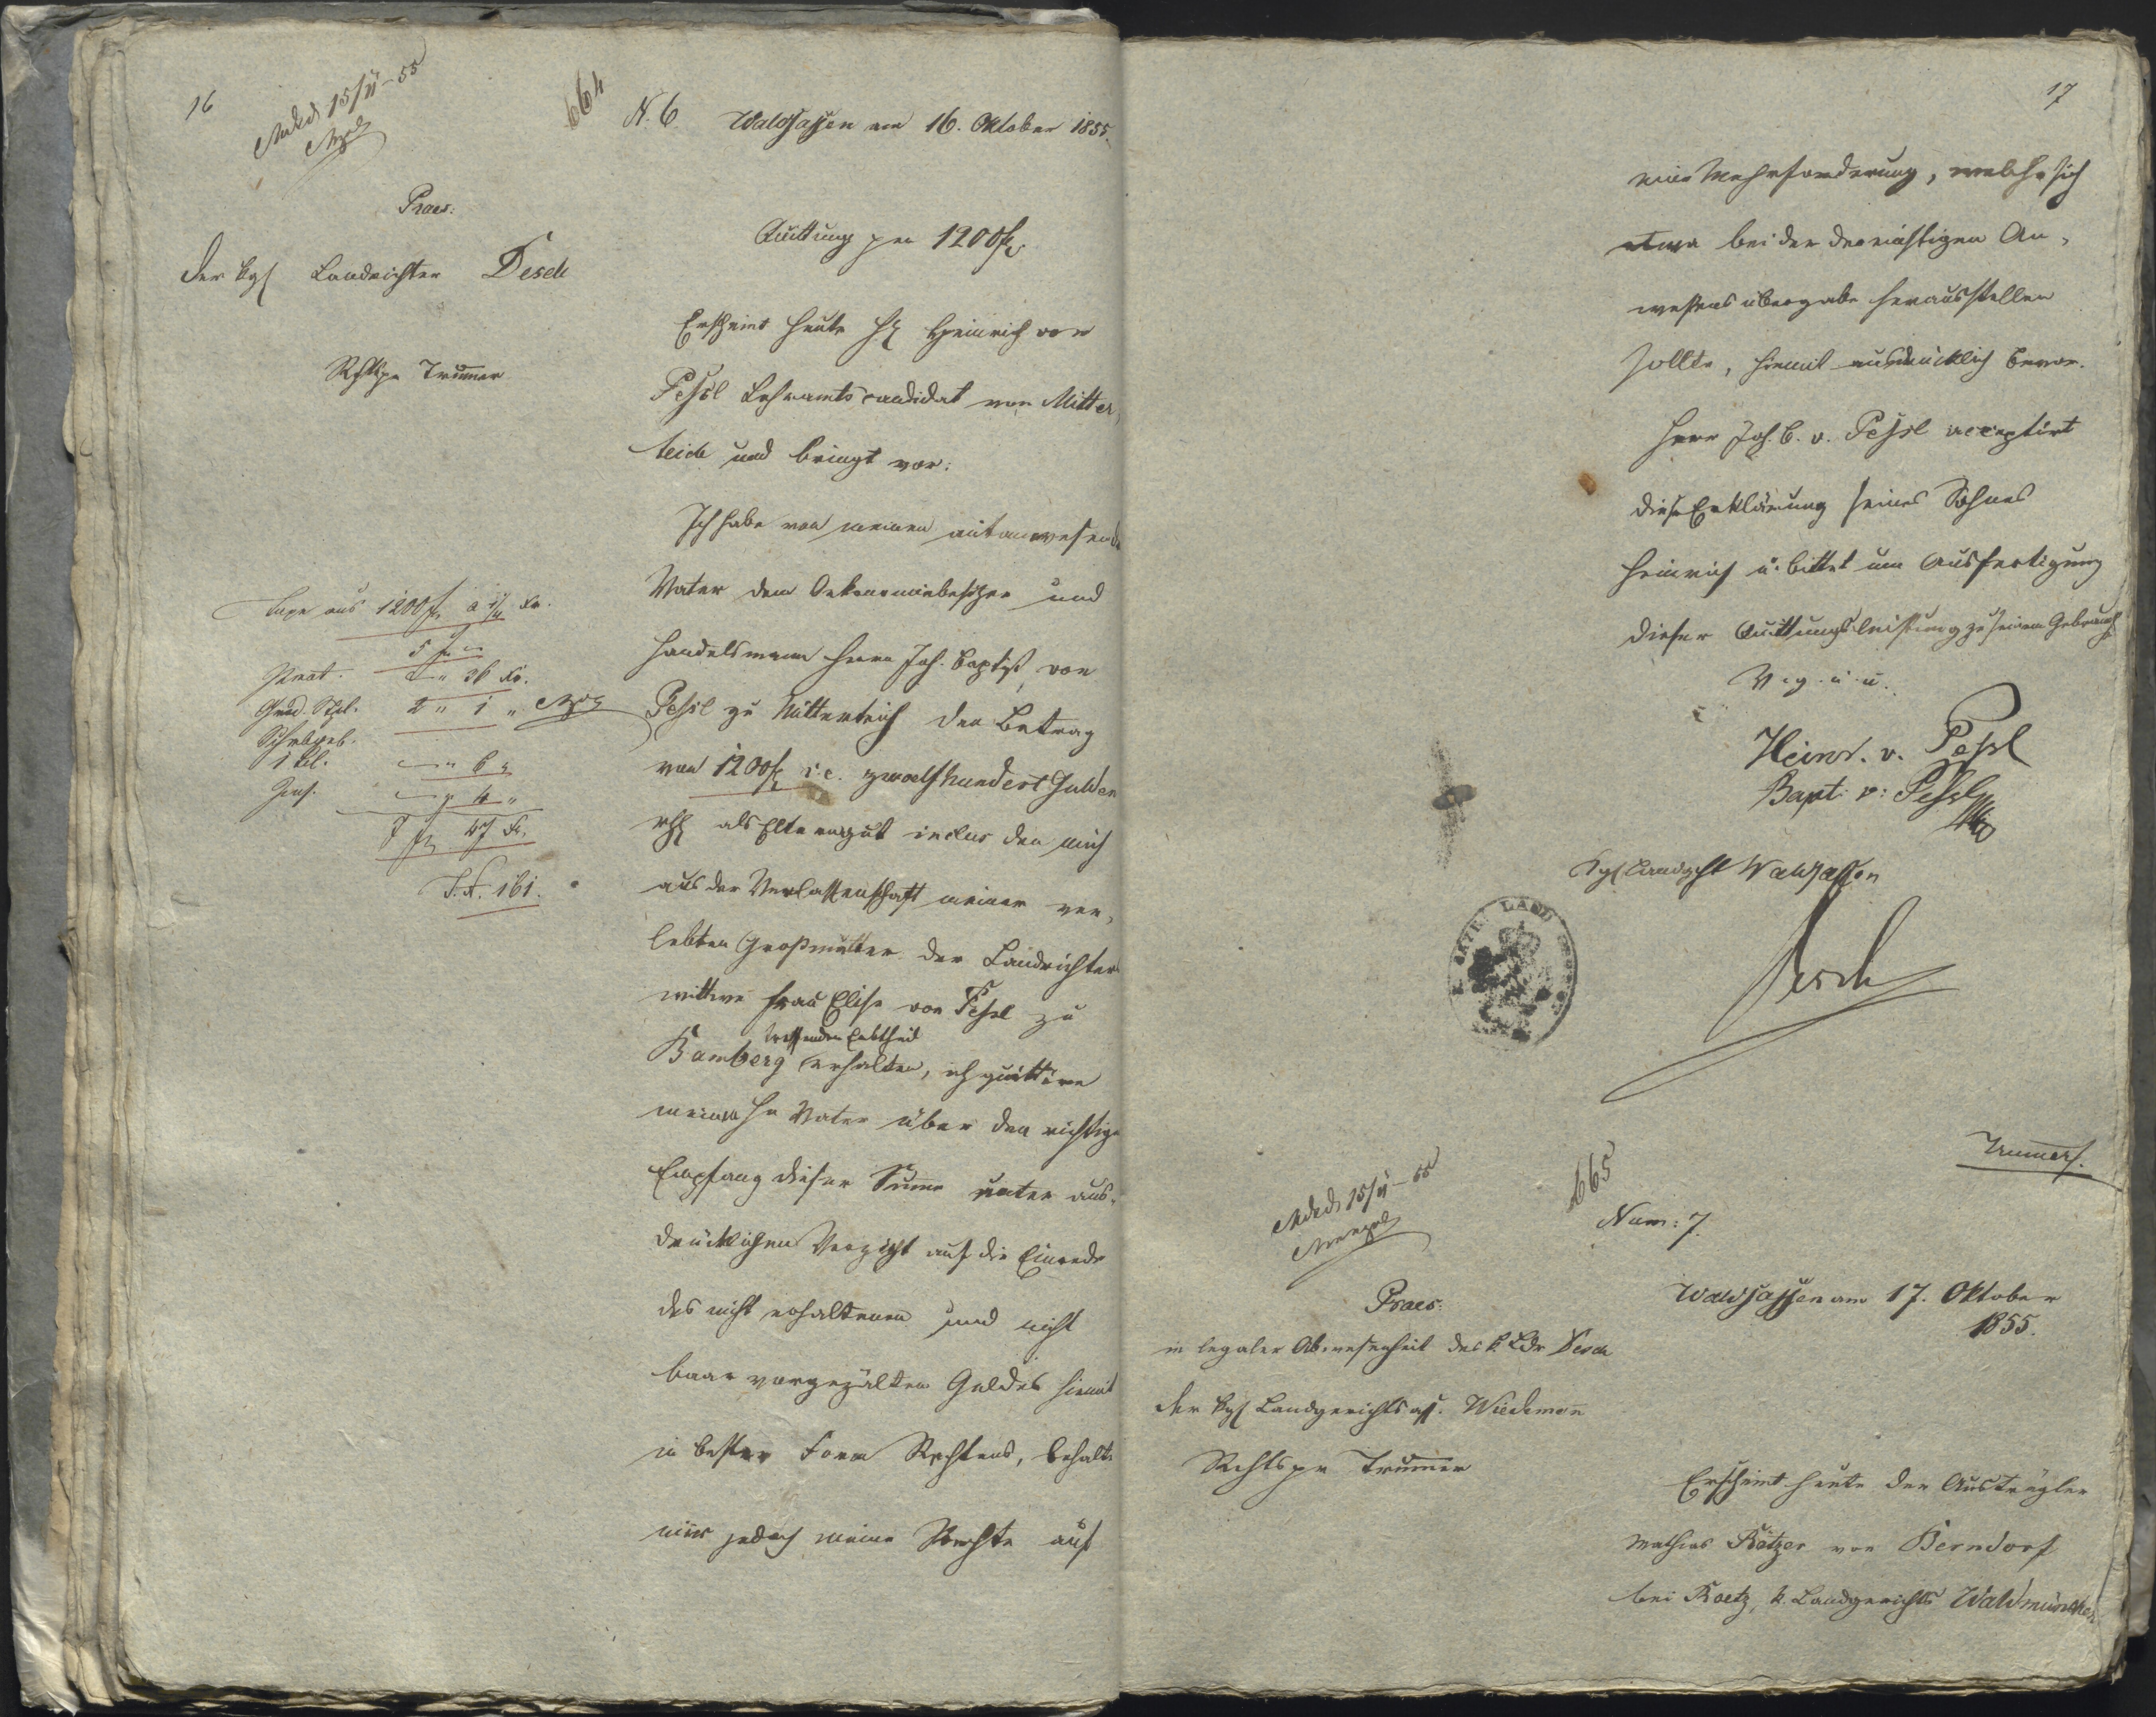 16
15/11-55
664
N. 6. Waldsassen am 16. Oktober 1855.
Praes:
der kgl Landrichter Desch
Rchtspr Trummer
Quittung per 1200 fl
Erscheint heute H. Heinrich von
Peßl Lehramtscandidat von Mitter,
teich und bringt vor:
Ich habe von meinem mitanwesend
Vater dem Oekonomiebesitzer und
Handelsmann Herrn Joh. Baptist von
Peßl zu Mitterteich den Betrag
von 1200 fl i.e. zwoelfhundert Gulden
rhl als Elterngut inclus den mich
aus der Verlassenschaft meiner ver,
lebten Großmutter der Landrichters
wittwe Frau Elise von Peßl zu
treffenden Erbtheil
Bamberg erhalten, ich quittire
meinem Hr Vater über den richtige
Empfang dieser Summe unter aus,
drücklichen Verzicht auf die Einrede
des nicht erhaltenen und nicht
baar vorgezälten Geldes hiemit
in bester Form Rechtens, behalte
mir jedoch meine Rechte auf
Taxe aus 1200 fl à 1/4 kr.
5 fl "
36 kr.
2 " 1 "
Schrbgeb.
" 6 "
" 4 "
7 fl 47 kr.
T.N. 161.
17
eine Mehrforderung, welche sich
etwa bei der dereinstigen An,
wesensübergabe herausstellen
sollte, hiemit ausdrücklich bevor.
Herr Joh. B. v. Peßl acceptirt
diese Erklärung seines Sohnes
Heinrich u. bittet um Ausfertigung
dieser Quittungsleistung zu seinem Gebrauch
V. g. u. u.
Heinr. v. Peßl
Bapt: v: Peßl
Kgl Landgcht Waldsassen
LAND
Desch
Trummer.
15/11-55
665
Num: 7.
Praes:
in legaler Abwesenheit des k. Ldr Desch
der kgl Landgerichtsass. Wiedemann
Rechtspr Trummer
Waldsassen am 17. Oktober
1855.
Erscheint heute der Austrägler
Mathias Rötzer von Berndorf
bei Roetz, k. Landgerichts Waldmünchen